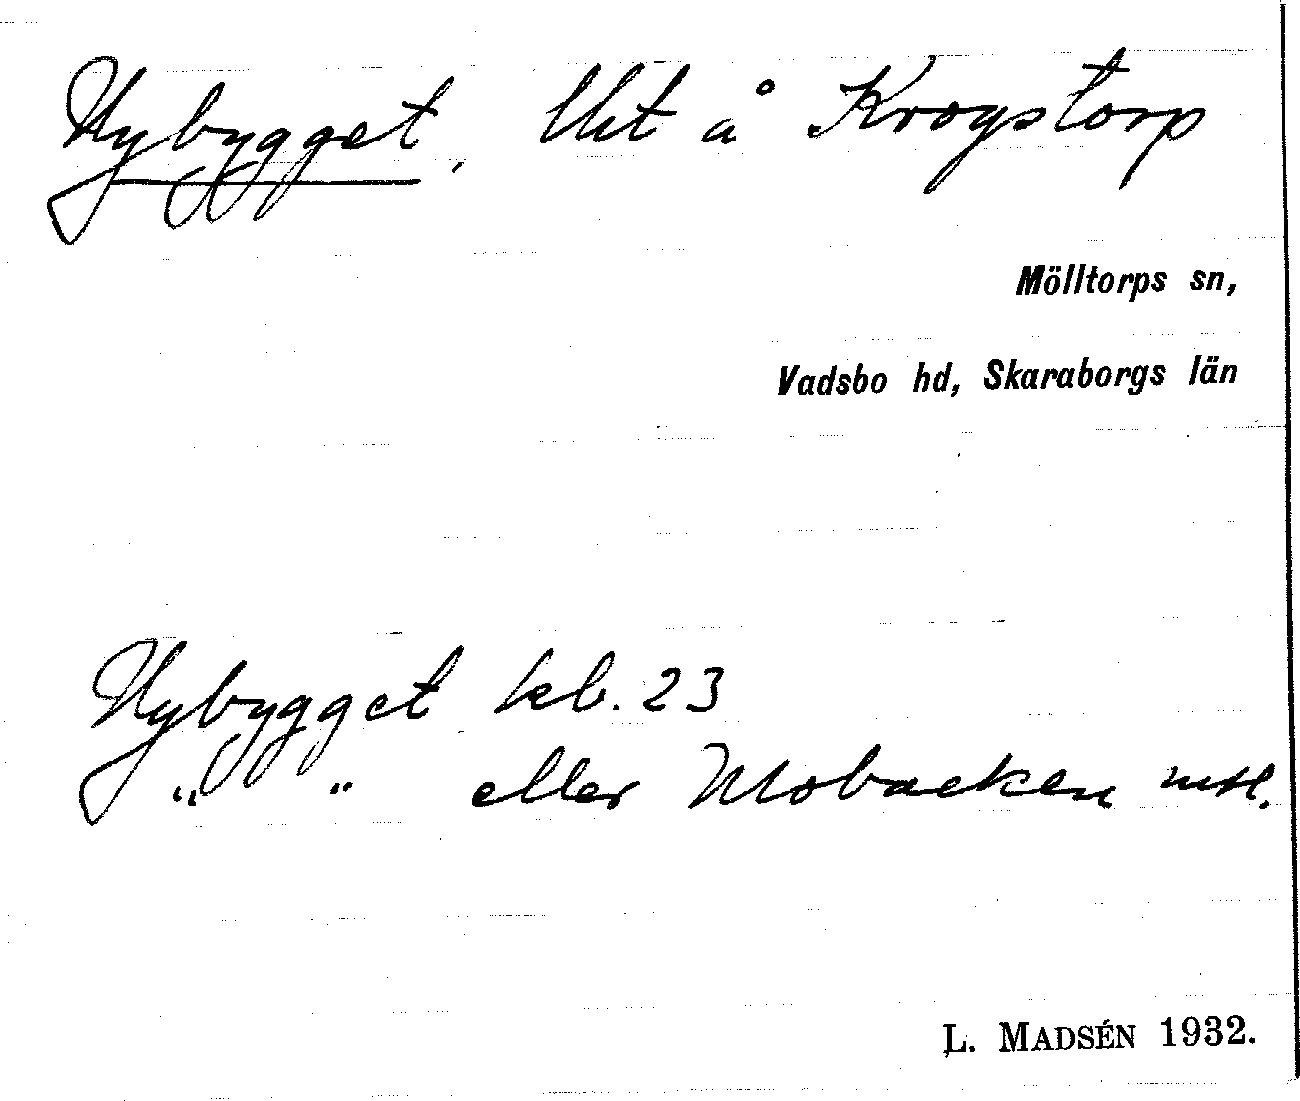 Nybygget, lht å Krogstorp
Mölltorps sn,
Vadsbo hd, Skaraborgs län
Nybygget kb. 23
" " eller Mobacken mtl.
L. MADSÉN 1932.